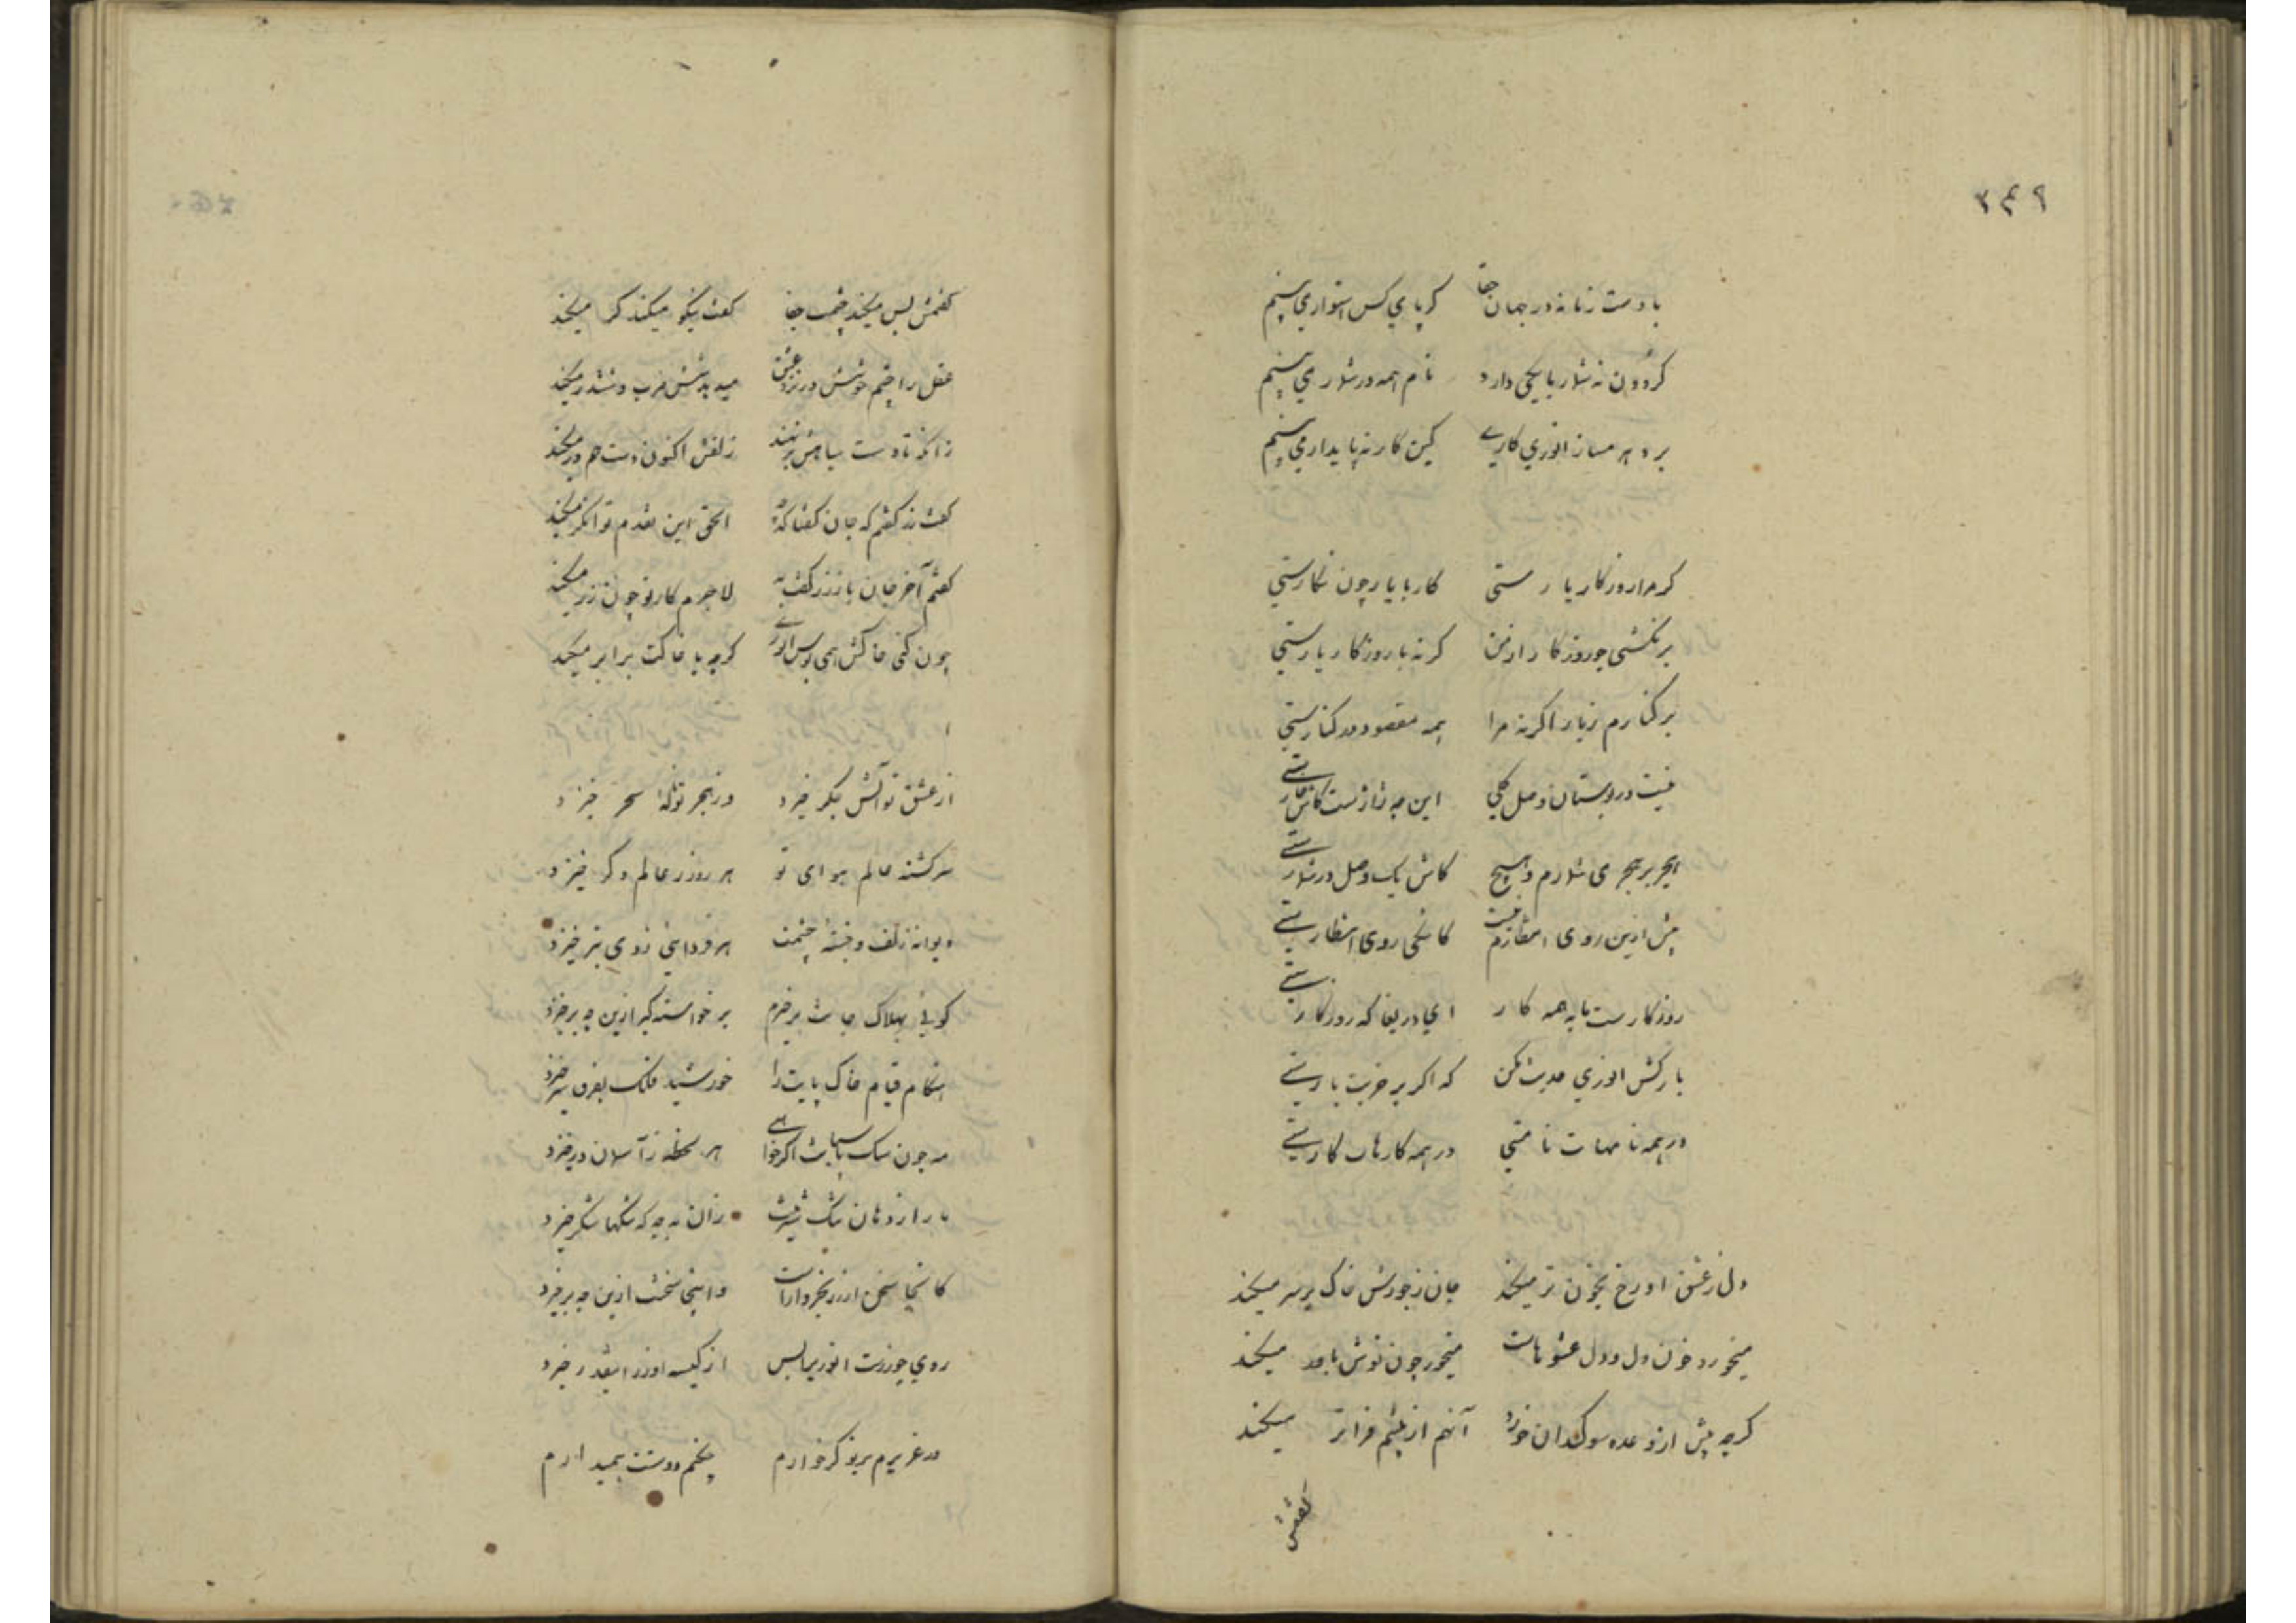 ۳۴۹
با دست زمانه در جهان جفا کر پای کس استوار می بینم
کردون نه شمار با یکی دارد نام همه در شمار می بینم
بر دهر مساز انوری کاری کین کار نه پایدار می بینم
کر مرا روزکار یارستی کار با یار چون نکارستی
برنکشتی چو روزکار از من کر نه با روزکار یارستی
برکنارم ز یار اکر نه مرا همه مقصود در کنارستی
نیست در بوستان وصل کلی این چه ژاژست کاش خارستی
هجر بر هجر می شمارم و هیچ کاش یک وصل در شمارستی
پیش ازین روی انتظارم نیست کاشکی روی انتظارستی
روزکارست مایه همه کار ای دریغا که روزکارستی
بارکش انوری حدیث مکن که اکر بر خریت بارستی
در همه نامهات نامستی در همه کارهات کارستی
دل ز عشق او رخ بخون تر میکند جان ز جورش خاک بر سر میکند
میخورد خون دل و دل عشوهاست میخورد چون نوش باور میکند
کرچه پیش از وعده سوکندان خورد آنهم از پیشم فراتر میکند
کفتمش
کفتمش بس میکند چشمت جفا کفت نیکو میکند کر میکند
عقل را چشم خوشش در نرد عشق میدهد شش ضرب و ششدر میکند
زانکه تا دست سیاهش برنهند زلفش اکنون دست هم در میکند
کفت زر کفتم که جان کفتا که الحق این نقدم توانکر میکند
کفتم آخر جان به از زر کفت به لاجرم کار تو چون زر میکند
چون کنی خاکش همی بوس انوری کرچه با خاکت برابر میکند
از عشق تو آتش جکر خیزد در هجر تو نالۀ سحر خیزد
سرکشته عالم هوای تو هر روز ز عالم دکر خیزد
دیوانه زلف و خسته چشمت هر فردایی ز دی بتر خیزد
کوئی بهلاک جانت برخیزم برخواسته کیر ازین چه برخیزد
هنکام قیام خاک پایت را خورشید فلک بفرق سر خیزد
مه چون سک پاسبانت اکر خواهی هر لحظه ز آسمان در خیزد
ما را ز دهان تنک شیرینت زان به چه که تنکها شکر خیزد
کانجا سخن از زر بخروارست و اینجا سخنست ازین چه برخیزد
روی چو زرت انوریا بس از کیسه او زر اینقدر خیزد
در عزیزم بر تو کر خوارم چکنم دوستت همیدارم